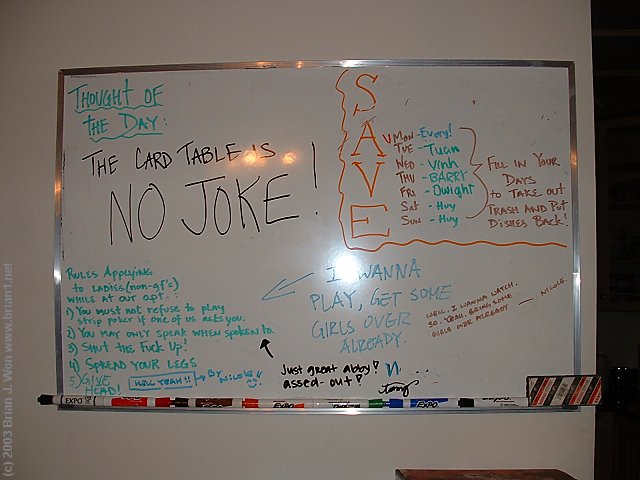 THOUGHT OF
THE DAY:
THE CARD TABLE IS
NO JOKE!
SAVE
Mon - Every!
TUE - Tuan
WED - Vinh
THU - BARRY
FRI - Dwight
Sat - Huy
Sun - Huy
FILL IN YOUR
DAYS
to TAKE OUT
TRASH AND PUT
DISHES BACK!
RULES APPLYING
TO LADIES (non-gf's)
WHILE AT OUR apt.:
1) YOU MUST NOT REFUSE TO PLAY
strip poker IF ONE OF US ASKS YOU.
2) YOU MAY ONLY SPEAK WHEN SPOKEN TO.
3) SHUT THE FUCK UP!
4) SPREAD YOUR LEGS
5) GIVE
HEAD!
HELL YEAH!! → BY NICOLE
I WANNA
PLAY, GET SOME
GIRLS OVER
ALREADY.
WELL, I WANNA WATCH.
SO, YEAH, BRING SOME
GIRLS OVER ALREADY
— NICOLE.
Just great abby?
assed-out?
EXPO
EXPO
EXPO
EXPO
(c) 2003 Brian J Won www.brian1.net